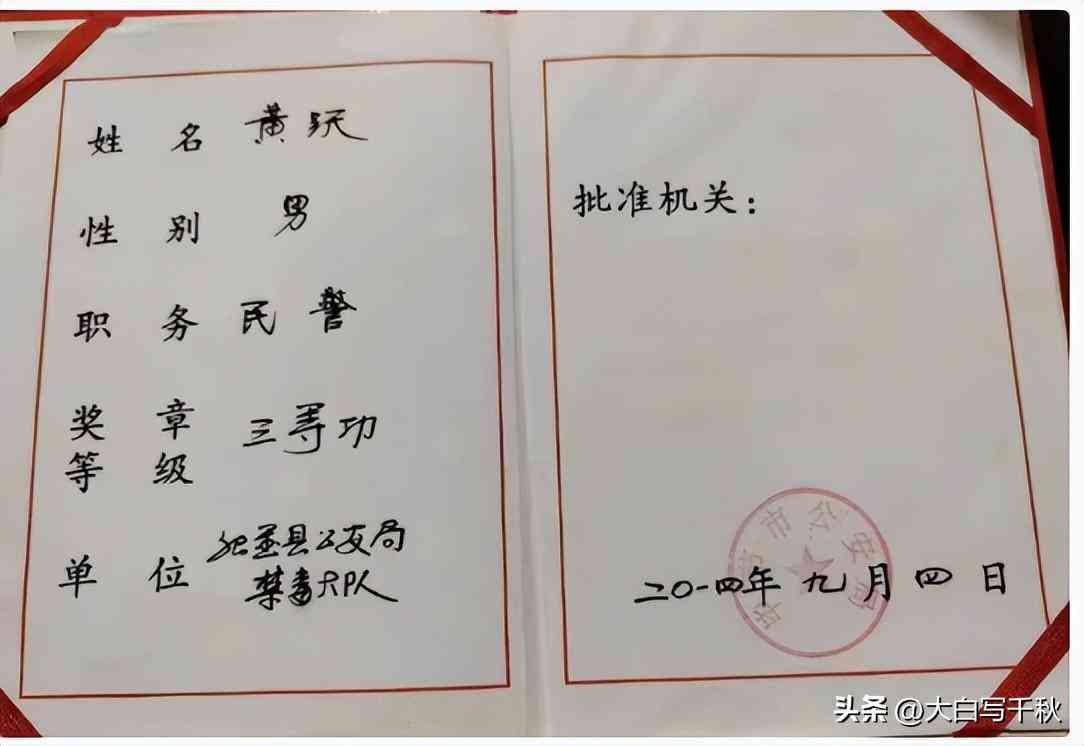 姓名 黄跃
性别 男
职务 民警
奖章等级 三等功
单位 县公安局
禁毒大队
批准机关：
二〇一四年九月四日
市公安局
头条 @大白写千秋